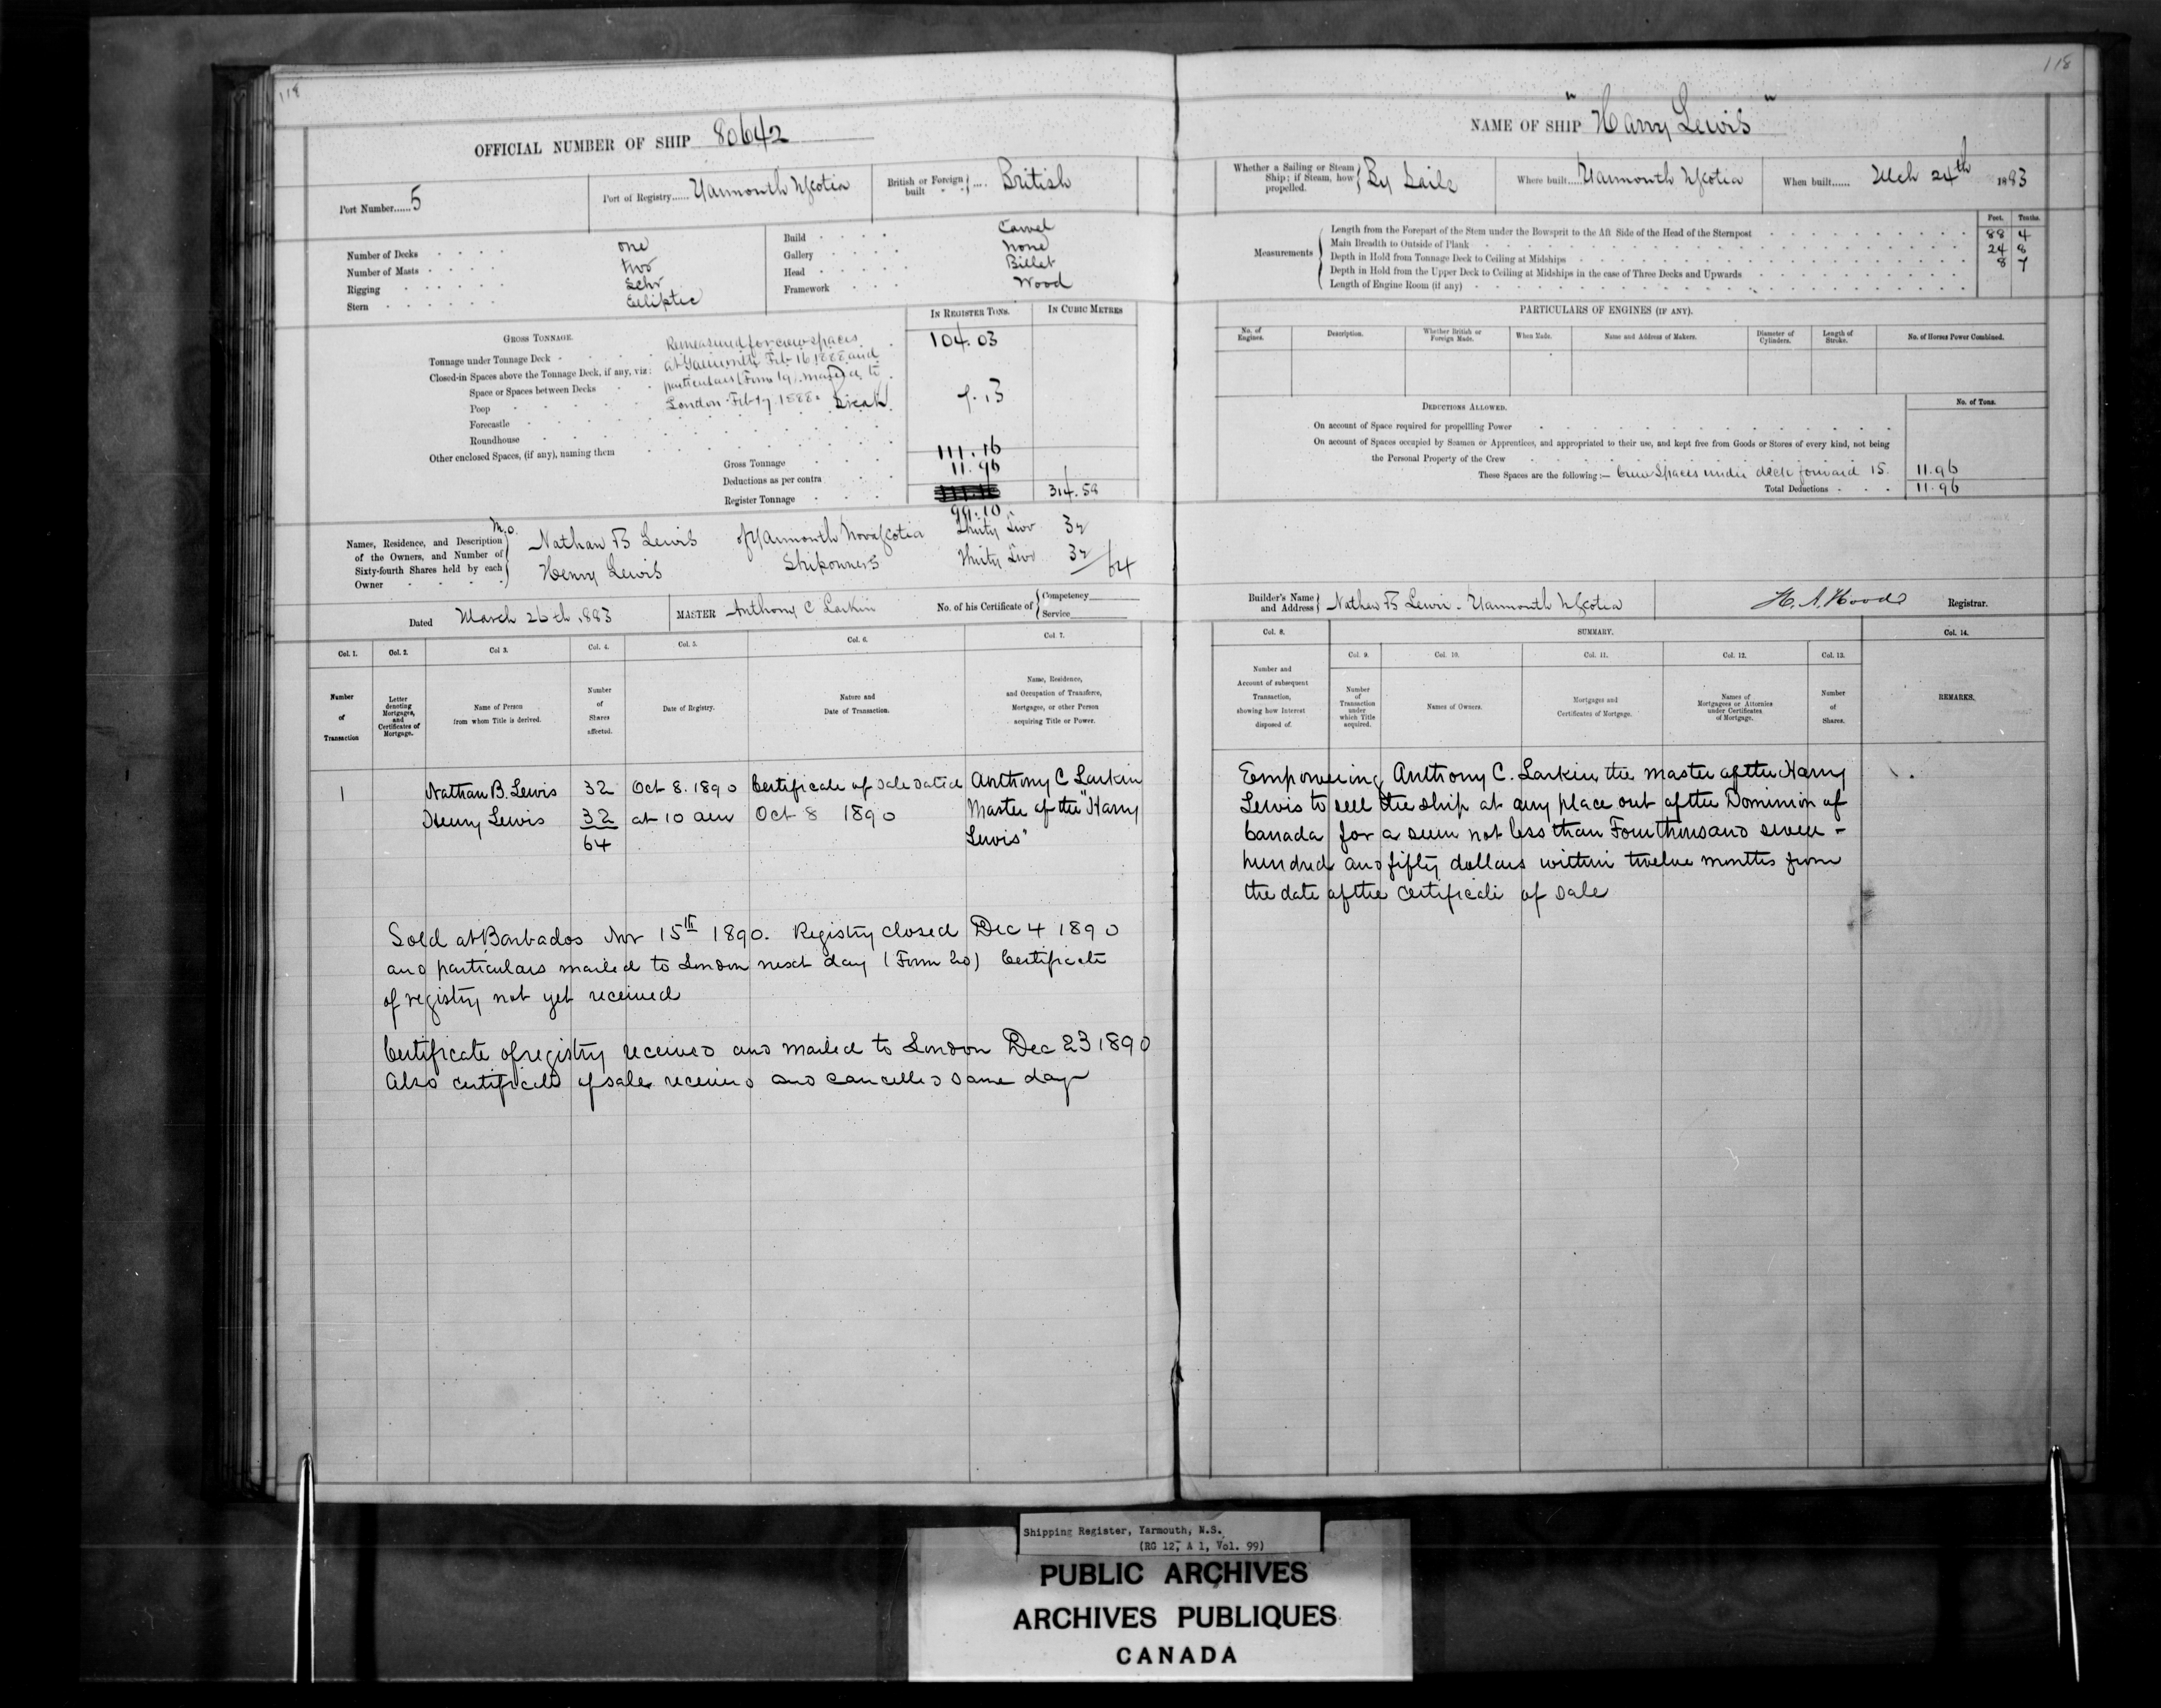 118
OFFICIAL NUMBER OF SHIP 80642
Port Number......5
Port of Registry...... Yarmouth NScotia
British or Foreign built .... British
Number of Decks one
Number of Masts two
Rigging Schr
Stern Elliptic
Build Carvel
Gallery None
Head Billet
Framework Wood
GROSS TONNAGE.
IN REGISTER TONS.
IN CUBIC METRES
Remeasured for crew spaces
at Yarmouth Feb 16 1888 and
particulars (Form 19) mailed to
London Feb 17 1888.
Tonnage under Tonnage Deck 104.03
Closed-in Spaces above the Tonnage Deck, if any, viz:
Space or Spaces between Decks
Poop Break 7.13
Forecastle
Roundhouse
Other enclosed Spaces, (if any), naming them
Gross Tonnage 111.16
Deductions as per contra 11.96
Register Tonnage 314.59
99.10
Names, Residence, and Description of the Owners, and Number of Sixty-fourth Shares held by each Owner
Nathan B Lewis of Yarmouth Nova Scotia Thirty Two 32
Henry Lewis Shipowners Thirty Two 32/64
Dated March 26th 1883
MASTER Anthony C Larkin
No. of his Certificate of { Competency
Service
Col. 1. Col. 2. Col 3. Col. 4. Col. 5. Col. 6. Col. 7.
Number of Transaction
Letter denoting Mortgages, and Certificates of Mortgage.
Name of Person from whom Title is derived.
Number of Shares affected.
Date of Registry.
Nature and Date of Transaction.
Name, Residence, and Occupation of Transferee, Mortgagee, or other Person acquiring Title or Power.
1 Nathan B. Lewis 32 Oct 8. 1890 Certificate of Sale dated Anthony C Larkin
Henry Lewis 32 at 10 am Oct 8 1890 Master of the "Harry
64 Lewis"
Sold at Barbados Nov 15th 1890. Registry closed Dec 4 1890
and particulars mailed to London next day (Form 20) Certificate
of registry not yet received
Certificate of registry received and mailed to London Dec 23 1890
Also certificate of sale received and cancelled same day
118
NAME OF SHIP "Harry Lewis"
Whether a Sailing or Steam Ship; if Steam, how propelled. By Sails
Where built.... Yarmouth NScotia
When built...... Mch 24th 1883
Measurements
Feet. Tenths.
Length from the Forepart of the Stem under the Bowsprit to the Aft Side of the Head of the Sternpost 88 4
Main Breadth to Outside of Plank 24 8
Depth in Hold from Tonnage Deck to Ceiling at Midships 8 7
Depth in Hold from the Upper Deck to Ceiling at Midships in the case of Three Decks and Upwards
Length of Engine Room (if any)
PARTICULARS OF ENGINES (IF ANY).
No. of Engines.
Description.
Whether British or Foreign Made.
When Made.
Name and Address of Makers.
Diameter of Cylinders.
Length of Stroke.
No. of Horses Power Combined.
DEDUCTIONS ALLOWED.
No. of Tons.
On account of Space required for propelling Power
On account of Spaces occupied by Seamen or Apprentices, and appropriated to their use, and kept free from Goods or Stores of every kind, not being
the Personal Property of the Crew
These Spaces are the following:— Crew Spaces under deck forward 15. 11.96
Total Deductions 11.96
Builder's Name and Address } Nathan B Lewis. Yarmouth NScotia
H. A. Hood Registrar.
Col. 8. SUMMARY. Col. 14.
Col. 9. Col. 10. Col. 11. Col. 12. Col. 13.
Number and Account of subsequent Transaction, showing how Interest disposed of.
Number of Transaction under which Title acquired.
Names of Owners.
Mortgages and Certificates of Mortgage.
Names of Mortgagees or Attornies under Certificates of Mortgage.
Number of Shares.
REMARKS.
Empowering Anthony C. Larkin the master of the Harry
Lewis to sell the ship at any place out of the Dominion of
Canada for a sum not less than Four thousand seven -
hundred and fifty dollars within twelve months from
the date of the certificate of sale
Shipping Register, Yarmouth, N.S.
(RG 12, A 1, Vol. 99)
PUBLIC ARCHIVES
ARCHIVES PUBLIQUES
CANADA